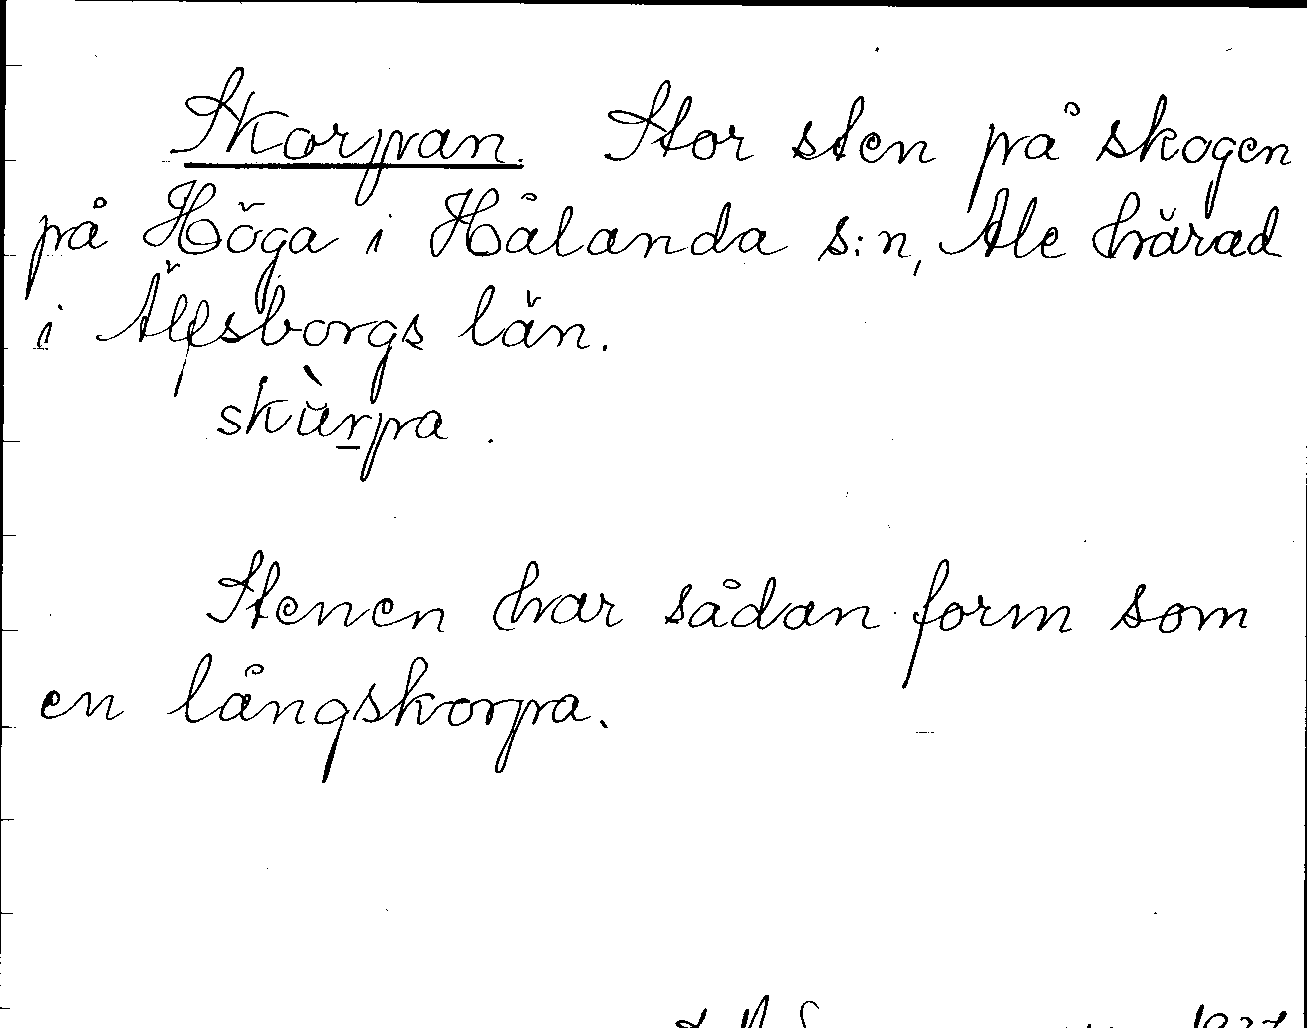 Skorpan. Stor sten på skogen
på Höga i Hålanda s:n, Ale härad
i Älfsborgs län.
skùrpa.
Stenen har sådan form som
en långskorpa.